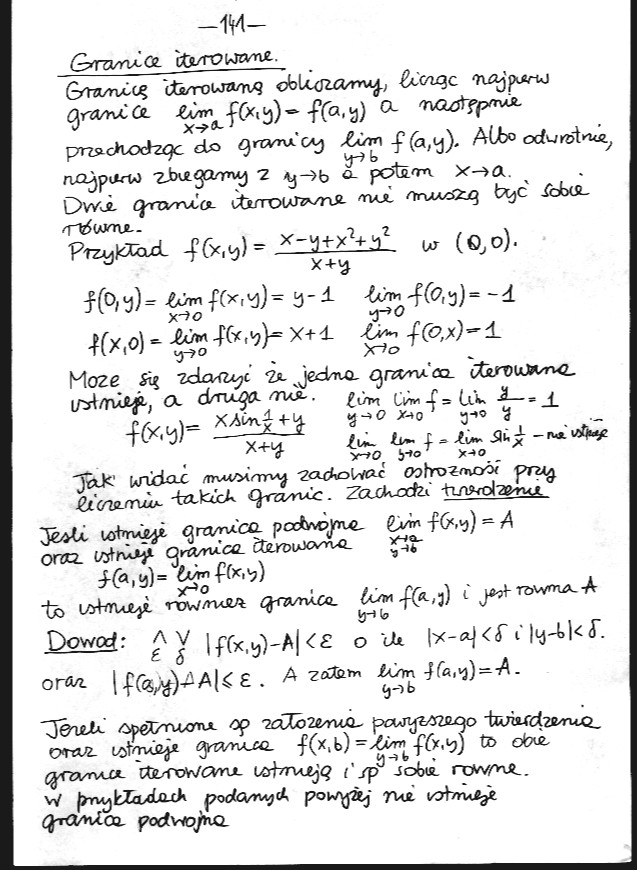 —141—
Granice iterowane.
Granicę iterowaną obliczamy, licząc najpierw
granicę lim x→a f(x,y) = f(a,y) a następnie
przechodząc do granicy lim y→b f(a,y). Albo odwrotnie,
najpierw zbiegamy z y→b a potem x→a.
Dwie granice iterowane nie muszą być sobie
równe.
Przykład f(x,y) = (x-y+x²+y²)/(x+y) w (0,0).
f(0,y) = lim x→0 f(x,y) = y-1 lim y→0 f(0,y) = -1
f(x,0) = lim y→0 f(x,y) = x+1 lim x→0 f(0,x) = 1
Moze się zdarzyć że jedna granica iterowana
istnieje, a druga nie. lim y→0 lim x→0 f = lim y→0 y/y = 1
f(x,y) = (x sin 1/x + y)/(x+y) lim x→0 lim y→0 f = lim x→0 sin 1/x - nie istnieje
Jak widać musimy zachować ostrozność przy
liczeniu takich granic. Zachodzi twierdzenie
Jeśli istnieje granica podwójna lim x→a y→b f(x,y) = A
oraz istnieje granica iterowana
f(a,y) = lim x→0 f(x,y)
to istnieje również granica lim y→b f(a,y) i jest rowna A
Dowod: ∧ε ∨δ |f(x,y)-A|<ε o ile |x-a|<δ i |y-b|<δ.
oraz |f(a,y)-A|≤ε. A zatem lim y→b f(a,y) = A.
Jezeli spełnione są założenia powyzszego twierdzenia
oraz istnieje granica f(x,b) = lim y→b f(x,y) to obie
granice iterowane istnieją i są sobie rowne.
W przykładach podanych powyżej nie istnieje
granica podwojna